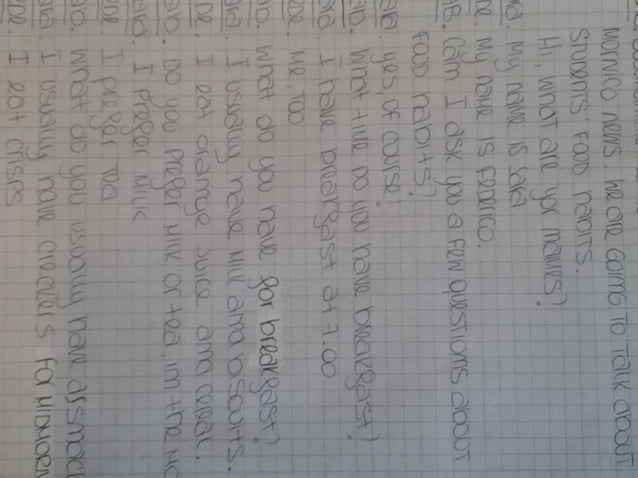 MORNICO NEWS WE ARE GOING TO TALK ABOUT
STUDENTS' FOOD HABITS.
Hi, WHAT ARE YOR NAMES?
My NAME IS SARA
My NAME IS FEDERICO.
CAM I ASK YOU A FEW QUESTIONS ABOUT
FOOD HABITS?
yes of course!
WHAT TIME DO YOU HAVE BREAKFAST?
I HAVE BREAKFAST AT 7.00
ME, TOO
WHAT DO YOU HAVE FOR BREAKFAST?
I USUALLY HAVE MILK AND BISCUITS.
I EAT ORANGE JUICE AND CEREAL.
DO YOU PREFER MILK OR TEA, IM THE
I PREFER MILK
I PREFER TEA
WHAT DO YOU USUALLY HAVE AS
I USUALLY HAVE CRECKERS FOR
I EAT CRISPS